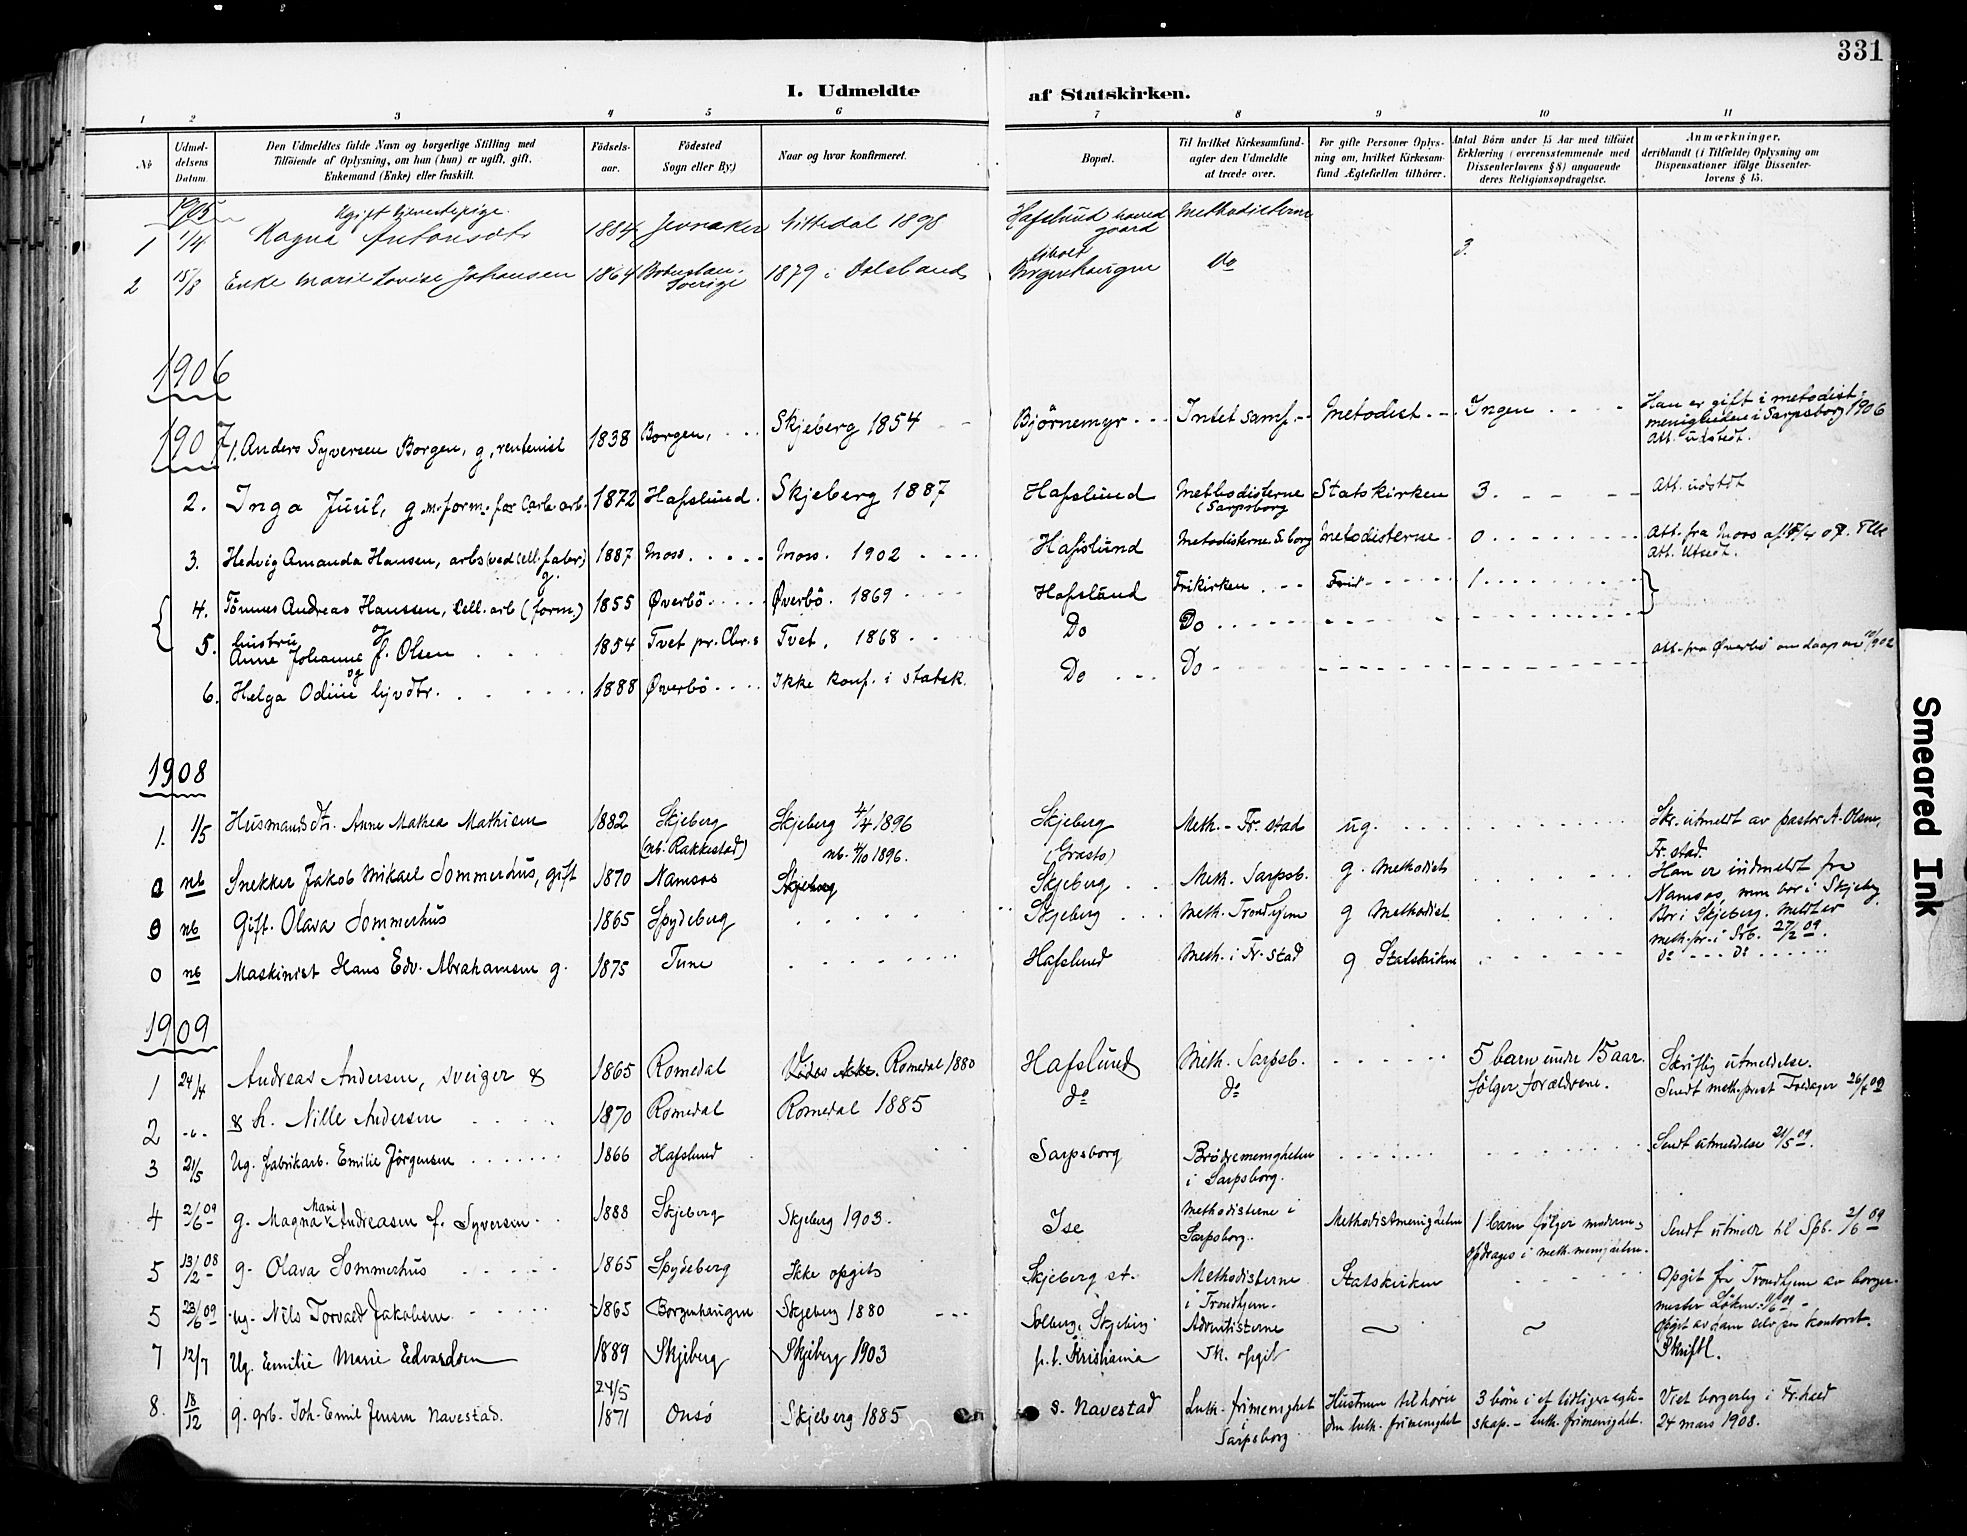 331
I. Udmeldte af Statskirken.
1 2 3 4 5 6 7 8 9 10 11
No
Udmeldelsens Datum.
Den Udmeldtes fulde Navn og borgerlige Stilling med Tilføiende af Oplysning, om han (hun) er ugift, gift, Enkemand (Enke) eller fraskilt.
Fødselsaar.
Fødested Sogn eller By)
Naar og hvor konfirmeret.
Bopæl.
Til hvilket Kirkesamfund agter den Udmeldte at træde over.
For gifte Personer Oplysning om, hvilket Kirkesamfund Ægtefællen tilhører.
Antal Börn under 15 Aar med tilføiet Erklæring (overensstemmende med Dissenterlovens § 8) angaaende deres Religionsopdragelse.
Anmærkninger, deriblandt (i Tilfælde) Oplysning om Dispensationer ifølge Dissenterlovens § 15.
1905
1 1/4 Ugift tjenestepige. Magna Antonsdtr 1884 Jevnaker Nittedal 1898 Hafslund hovedgaard Methodisterne
2 15/8 Enke Marie Lovise Johansen 1864 Bohuslän Sverige 1879 i Dalsland Borgenhaugen Do 3.
1906
1907
1. Anders Syversen Borgen, g, rentenist 1838 Borgen. Skjeberg 1854 Björnemyr Intet samf. Metodist Ingen Han er gift i metodistmenigheden i Sarpsborg 1906 Att. udstedt.
2. Inga Juul, g.m. form. for Carb. arb. 1872 Hafslund. Skjeberg 1887 Hafslund Methodisterne (Sarpsborg Statskirken 3. Att. udstdt
3. Hedvig Amanda Hansen, arb (ved cell. fabr) g. 1887 Moss. Moss. 1902 Hafslund Metodisterne S.borg Metodisterne 0 Att. fra Moss af 07. Att. utsedt.
4. Tömmes Andreas Hanssen, Cell. arb (form) 1855 Øverbö. Øverbö. 1869 Hafslund Frikirken Frik 1
5. hustru Anne Johanne f. Olsen 1854 Tvet pr. Chr.s Tvet. 1868 Do Do
og
6. Helga Odine hjvdtr. 1888 Øverbö Ikke konf. i statsk. Do Do Att. fra Øverbö om daap
1908
1. 1/5 Husmandsdtr. Anne Mathea Mathisen 1882 Skjeberg (nb. Rakkestad) Skjeberg 4/4 1896 nb. 4/10 1896. Skjeberg (Grasto) Meth. - Fr. stad ug. Skr. utmeldt av pastor A. Olsen, Fr. stad.
0 nb Snekker Jakob Mikael Sommerhus, gift 1870 Namsos Skjeberg Skjeberg Meth. Sarpsb. g. Methodist Han er indmeldt fra Namsos, men bor i Skjeberg
0 nb Gift. Olava Sommerhus 1865 Spydeberg Skjeberg Meth. Trondhjem g Methodist Bor i Skjeberg. Meldt er meth. pr. i Srb. 27/2 09.
0 nb Maskinist Hans Edv. Abrahamsen g. 1875 Tune Hafslund Meth. i Fr. stad g Statskirken do do
1909
1 24/4 Andreas Andersen, sveiger & 1865 Romedal Romedal 1880 Hafslund Meth. Sarpsb. 5 barn under 15 aar. følger forældrene. Skriftlig utmeldelse. Sendt meth. prest
2 -"- & h. Nille Andersen 1870 Romedal Romedal 1885 do do
3 21/5 Ug. fabrikarb. Emilie Jørgensen 1866 Hafslund Sarpsborg Brødremenigheten i Sarpsborg. Sendt utmeldelse 21/5 09.
4 2/6 09 g. Magna Marie Andreasen f. Syversen 1888 Skjeberg Skjeberg 1903. Ise Methodisterne i Sarpsborg. Methodistmenigheten 1 barn følger moderen, opdrages i meth. menigheten. Sendt utmeld til Spb. 2/6 09
5 13/2 08 g. Olava Sommerhus 1865 Spydeberg Ikke opgit Skjeberg st. Methodisterne i Trondhjem. Statskirken Opgit fra Trondhjem av borgermester Løken.
5 23/6 09 ug. Nils Torvald Jakobsen 1865 Borgenhaugen Skjeberg 1880 Solberg, Skjeberg Adventisterne Opgit av ham selv paa kontoret.
7 12/7 Ug. Emilie Marie Edvardsen 1889 Skjeberg Skjeberg 1903 p.t. Kristiania Ik. opgit Skriftl.
8. 18/12 g. grb. Joh. Emil Jensen Navestad. 24/5 1871 Onsö Skjeberg 1885 s. Navestad Luth. frimenighet i Sarpsborg Hustruen tilhører den luth. frimenighet 3 börn i et tidligere egteskap. - Luth. frimenighet. Viet borgerlig i Fr.hald 24 mars 1908.
Smeared Ink